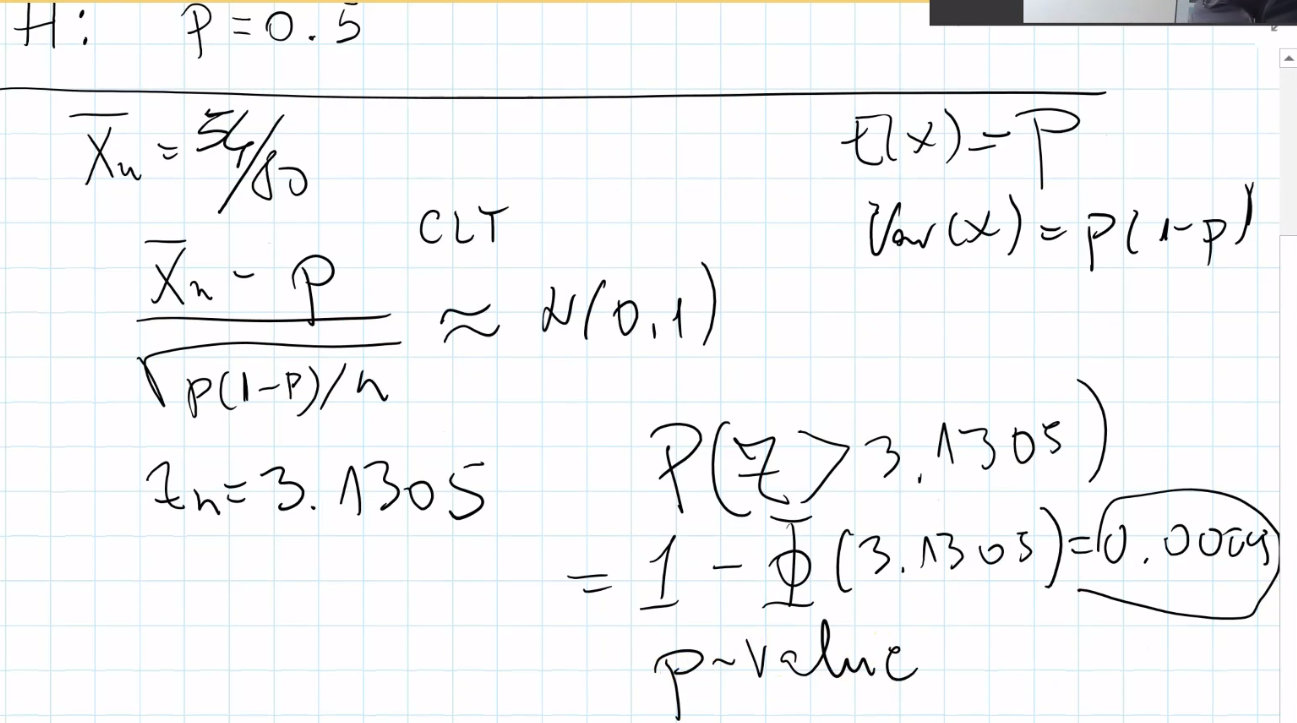 H: P = 0.5
X̄n = 54/80
E(X) = P
Var(X) = p(1-p)
CLT
(X̄n - p) / √(p(1-p)/n) ≈ N(0,1)
Zn = 3.1305
P(Z > 3.1305)
= 1 - Φ(3.1305) = 0.0009
p-value